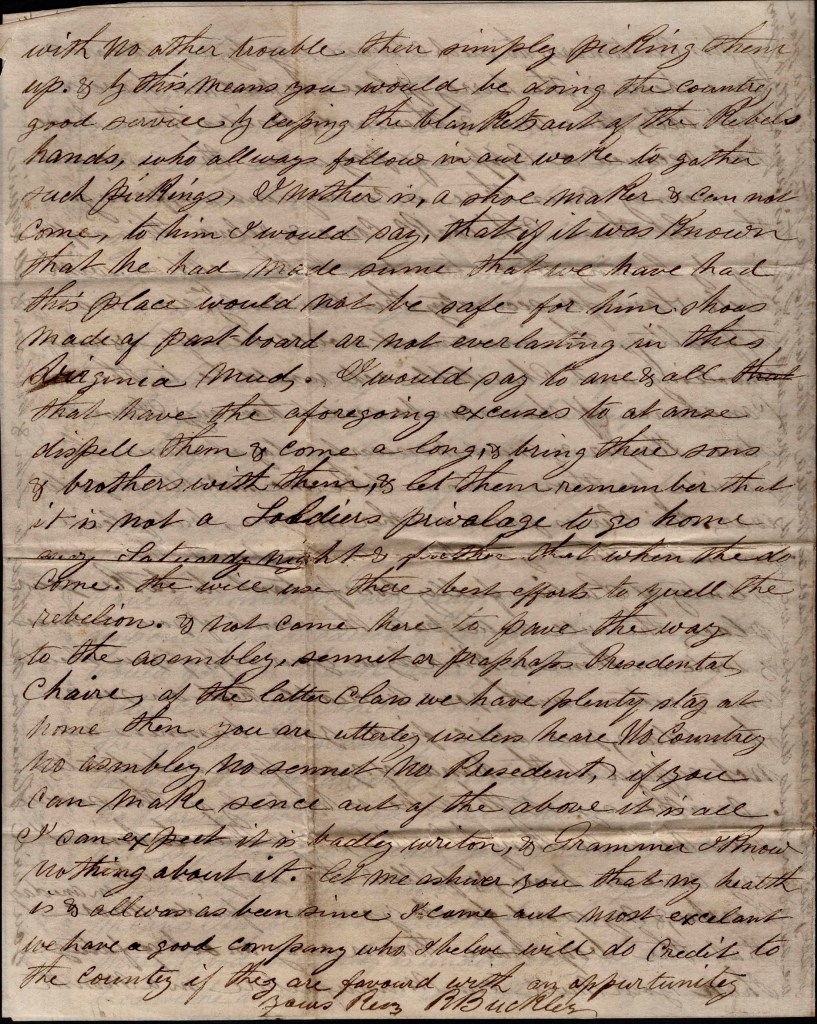 with no other trouble then simpley picking them
up. & by this means you would be doing the country
good service by ceeping the blankets out of the Rebels
hands, who allways follow in our woke to gather
such pickings, I nother is, a shoe maker & can not
come, to him I would say, that if it was known
that he had made sume that we have had
this place would not be safe for him. shous
made of past-board ar not everlasting in this
Virginia Mud. I would say to one & all that
that have the aforegoing excuses to at onse
dispell them & come a long, & bring there sons
& brothers with them, & let them remember that
it is not a Soldiers privalage to go home
every Saturday night & further that when the do
come. the will use there best efforts to quell the
rebelion. & not come here to pave the way
to the asembley, sennet or praphaps Presedental
Chaire, of the latter class we have plenty stay at
home then you are utterley useless heare No Country
no asembley no sennet no Presedent, if you
can make sence out of the above it is all
I can expect it is badley writon, & Grammer I know
nothing about it. let me ashure you that my health
is & allwas as been since I came out most excelant
we have a good company who I beleve will do Credit to
the country if they are favourd with an oppurtunitey
yours R Buckley